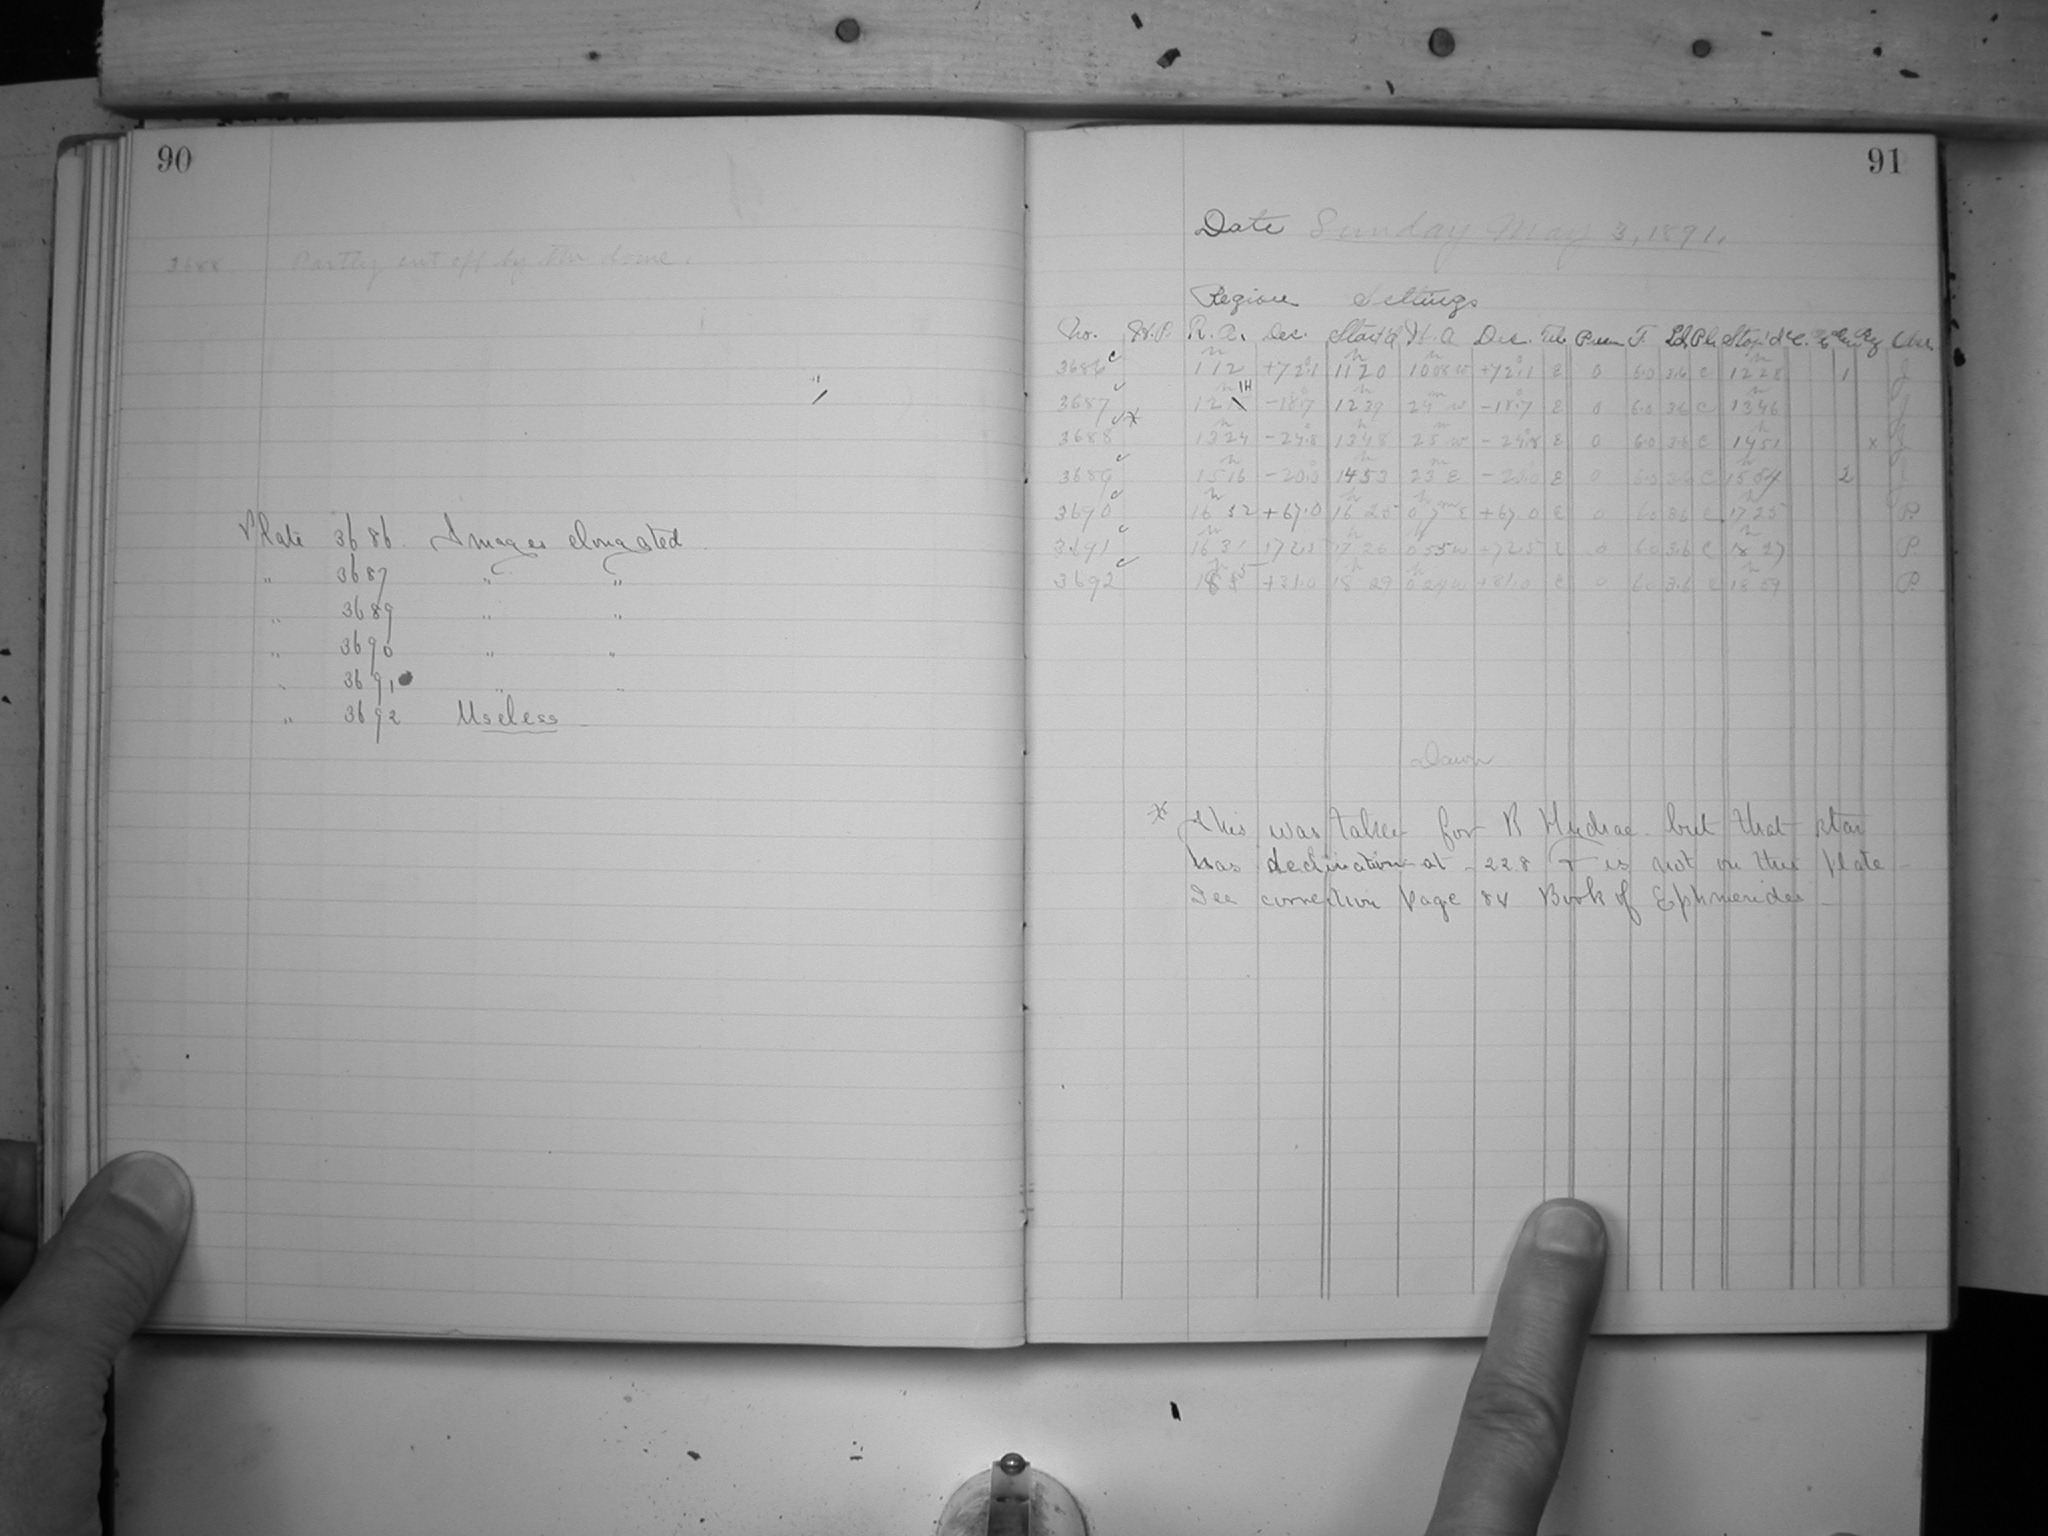 90
3688 Partly cut off by the dome.
Plate 3686. Images elongated
" 3687 " "
" 3689 " "
" 3690 " "
" 3691 " "
" 3692 Useless
91
Date Sunday May 3, 1891.
Region Settings
No. R.A. Dec. Start'd H.A. Dec. F. Stop'd
3686 112 +72.1 1120 1008 w +72.1 E 0 6.0 3.6 C 1228 1 J
3687 12 1H -18.7 1239 29 w -18.7 E 0 6.0 3.6 C 1346 J
3688 * 1324 -24.8 1348 25 w -24.8 E 0 6.0 3.6 C 1451 x J
3689 1516 -20.0 1453 23 E -20.0 E 0 6.0 3.6 C 1554 2 J
3690 16 32 +67.0 16 25 0 7 E +67.0 E 0 6.0 3.6 C 17 25 P.
3691 16 31 +72.5 17 26 0 55 w +72.5 E 0 6.0 3.6 C 18 27 P
3692 18 5 +31.0 18 29 0 24 w +31.0 E 0 6.0 3.6 C 18 59 P.
Dawn
* This was taken for R Hydrae but that star
has declination at -22.8 & is not on this Plate
See correction Page 84 Book of Ephmerides